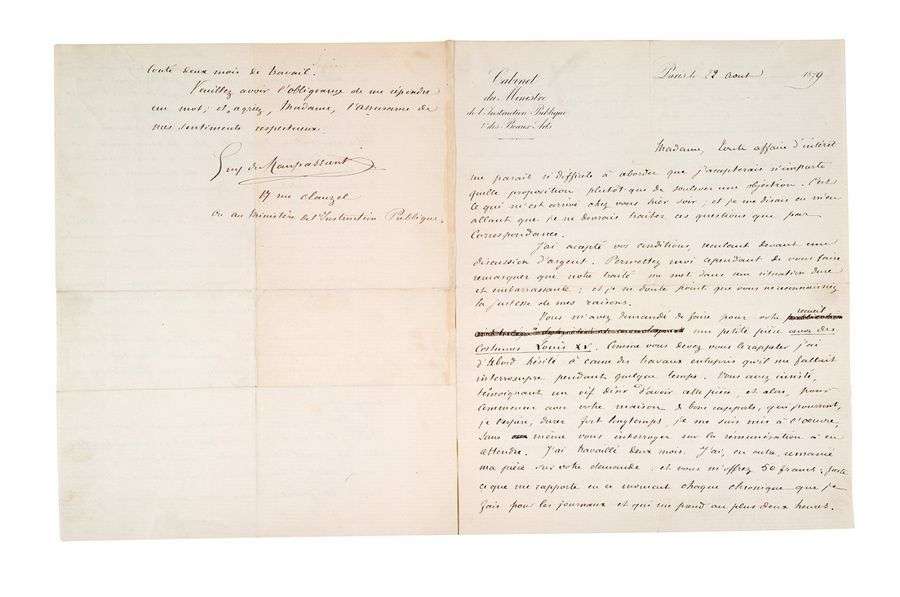 Cabinet
du Ministre
de l'Instruction Publique
& des Beaux-Arts
Paris le 22 aout 1879
Madame, toute affaire d'intérêt
me parait si difficile à aborder que j'accepterais n'importe
quelle proposition plutôt que de soulever une objection. C'est
ce qui m'est arrivé chez vous hier soir, et je me disais en m'en
allant que je ne devrais traiter ces questions que par
Correspondance.
J'ai accepté vos conditions, reculant devant une
discussion d'argent. Permettez moi cependant de vous faire
remarquer que notre traité me met dans une situation dure
et embarrassante ; et je ne doute point que vous ne reconnaissiez
la justesse de mes raisons.
Vous m'avez demandé de faire pour votre recueil
une petite pièce avec des
Costumes Louis XV. Comme vous devez vous le rappeler j'ai
d'abord hésité à cause des travaux entrepris qu'il me fallait
interrompre pendant quelque temps. Vous avez insisté,
témoignant un vif désir d'avoir cette pièce, et alors, pour
commencer avec votre maison de bons rapports, qui pourront,
je l'espère, durer fort longtemps, je me suis mis à l'oeuvre,
sans même vous interroger sur la rémunération à en
attendre. J'ai travaillé deux mois. J'ai, en outre, remanié
ma pièce sur votre demande ; et vous m'offrez 50 francs ; juste
ce que me rapporte en ce moment chaque chronique que je
fais pour les journaux et qui me prend au plus deux heures.
toute deux mois de travail.
Veuillez avoir l'obligeance de me répondre
un mot ; et, agréez, Madame, l'assurance de
mes sentiments respectueux.
Guy de Maupassant
17 rue Clauzel
ou au Ministère de l'Instruction Publique.